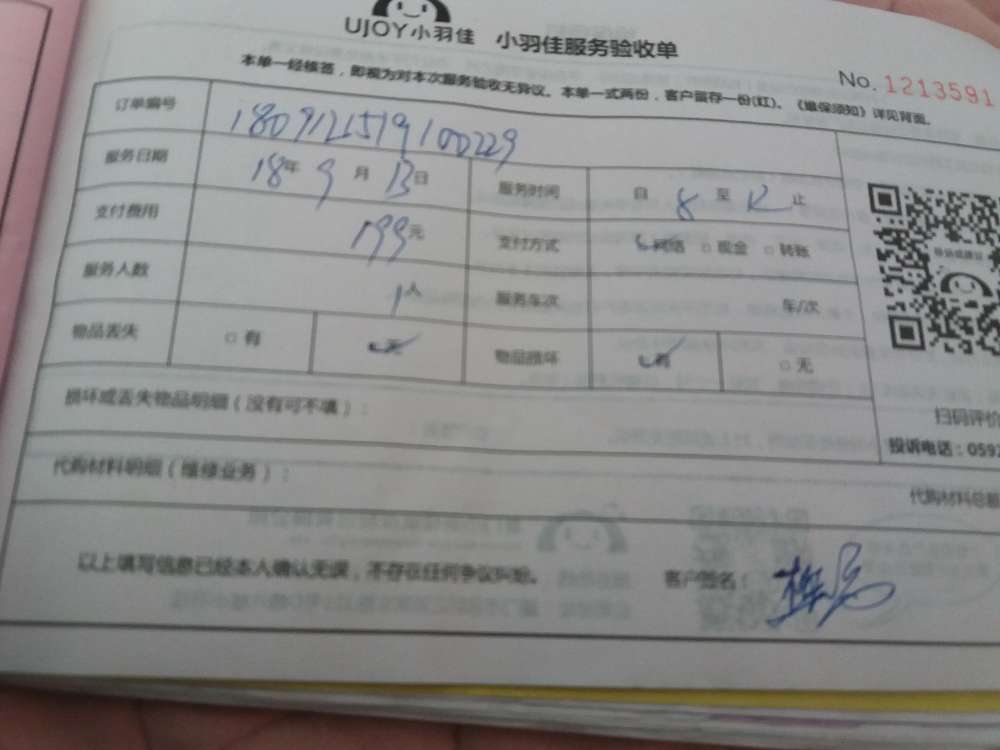 UJOY小羽佳 小羽佳服务验收单
本单一经核签，即视为对本次服务验收无异议。本单一式两份，客户留存一份(红)。《维保须知》详见背面。
No. 1213591
订单编号 1809121519100229
服务日期 18年9月13日 服务时间 自 8 至 12 止
支付费用 199元 支付方式 网络 □ 现金 □ 转账
服务人数 1人 服务车次 车/次
物品丢失 □ 有 无 物品损坏 有 □ 无
损坏或丢失物品明细（没有可不填）：
扫码评价
投诉电话：0592
代购材料明细（维修业务）：
代购材料总额
以上填写信息已经本人确认无误，不存在任何争议纠纷。
客户签名：